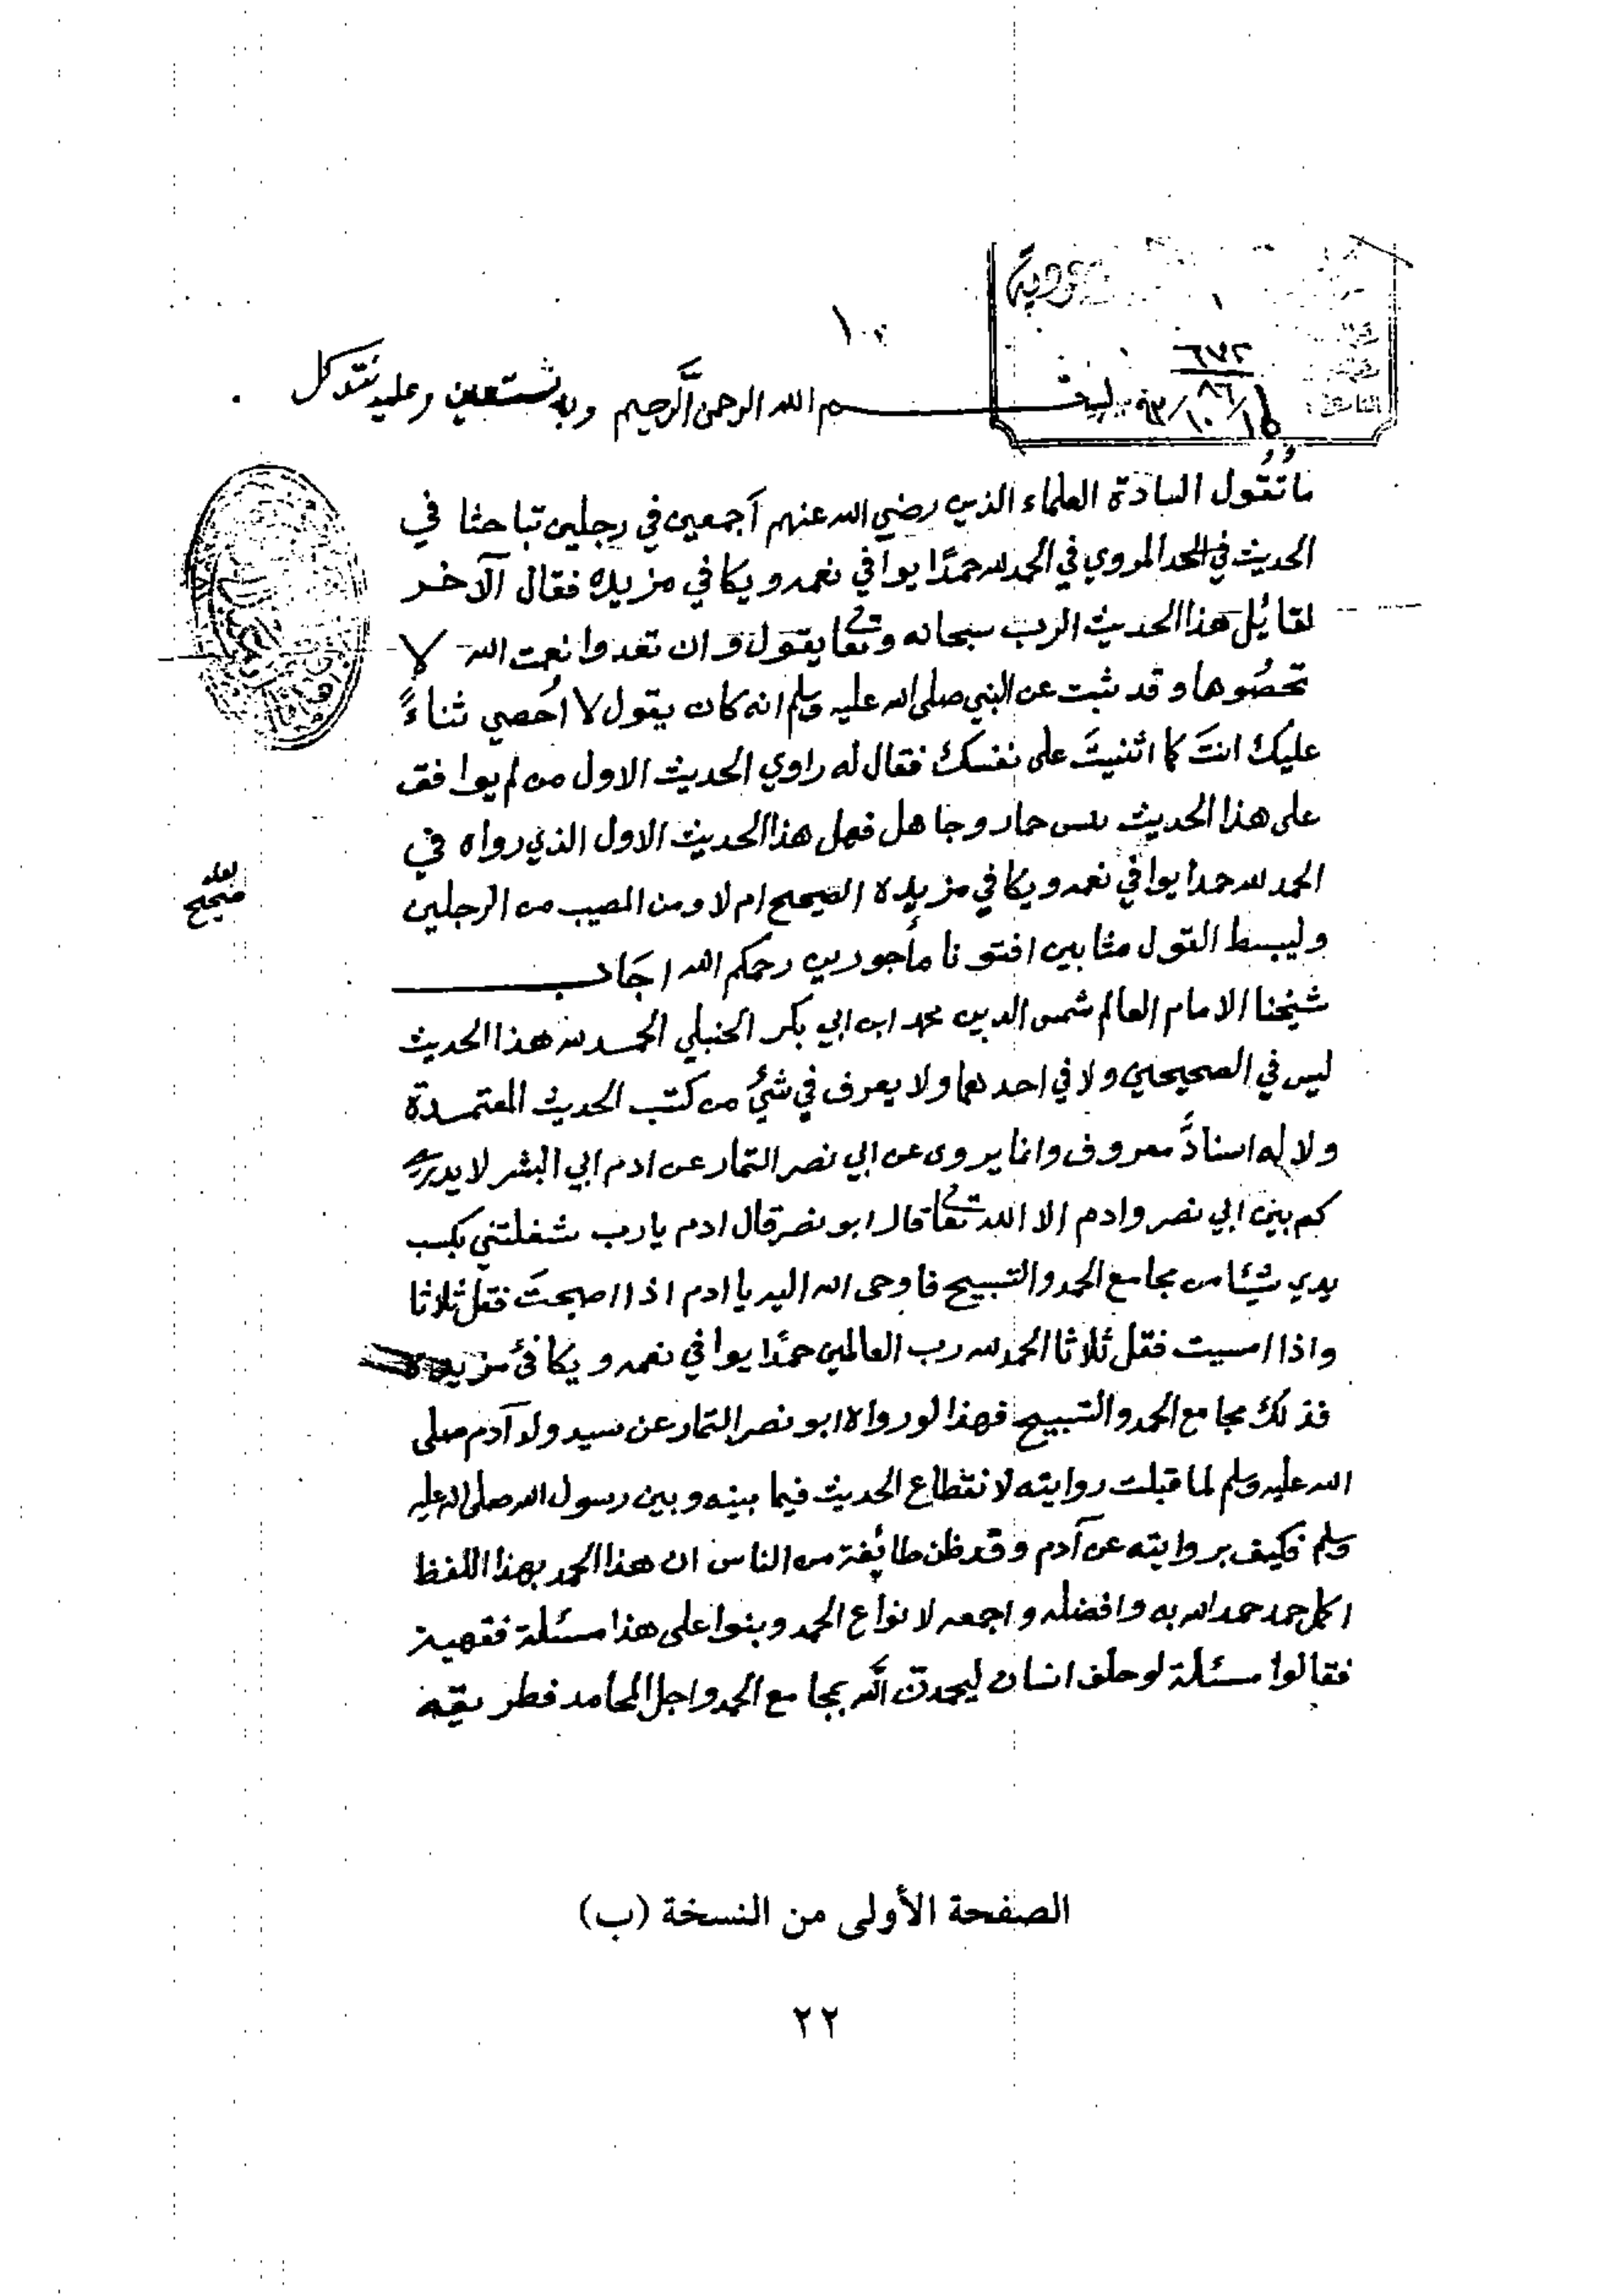 ١
٦٧٢
بسم الله الرحمن الرحيم وبه نستعين وعليه نتوكل
ما تقُول السادة العلماء الذين رضي الله عنهم أجمعين في رجلين تباحثا في
الحديث في الحمد المروي في الحمد لله حمدًا يوافي نعمه ويكافي مزيده فقال الآخر
لقايُل هذا الحديث الرب سبحانه وتعا يقول وان تعدوا نعمت الله لا
تحصُوها وقد ثبت عن النبي صلى الله عليه وسلم انه كان يقول لا اُحصي ثناءً
عليك انتَ كما اثنيتَ على نفسك فقال له راوي الحديث الاول من لم يوافق
على هذا الحديث حمار وجاهل فهل هذا الحديث الاول الذي رواه في
الحمد لله حمدا يوافي نعمه ويكافي مزيده الصحيح ام لا ومن المصيب من الرجلين
لعله
صحيح
وليبسط القول مثابين افتونا مأجورين رحمكم الله اجَاب
شيخنا الامام العالم شمس الدين محمد ابن ابي بكر الحنبلي الحمد لله هذا الحديث
ليس في الصحيحين ولا في احدهما ولا يعرف في شيُ من كتب الحديث المعتمدة
ولا له اسنادً معروف وانما يروى عن ابي نصر التمار عن ادم ابي البشر لا يدري
كم بين ابي نصر وادم الا الله تعا قال ابو نصر قال ادم يا رب شغلتني بكسب
يدي شيئا من مجامع الحمد والتسبيح فاوحى الله اليه يا ادم اذا اصبحتَ فقل ثلاثا
واذا امسيت فقل ثلاثا الحمد لله رب العالمين حمدًا يوافي نعمه ويكافئ مزيده
فذلك مجامع الحمد والتسبيح فهذا لو رواه ابو نصر التمار عن سيد ولد آدم صلى
الله عليه وسلم لما قبلت روايته لانقطاع الحديث فيما بينه وبين رسول الله صلى الله عليه
وسلم فكيف بروايته عن آدم وقد ظن طائفة من الناس ان هذا الحمد بهذا اللفظ
اكمل حمد حمد الله به وافضله واجمعه لانواع الحمد وبنوا على هذا مسئلة فقهية
فقالوا مسئلة لو حلف انسان ليحمدن الله بمجامع الحمد واجل المحامد فطريقه
الصفحة الأولى من النسخة (ب)
٢٢